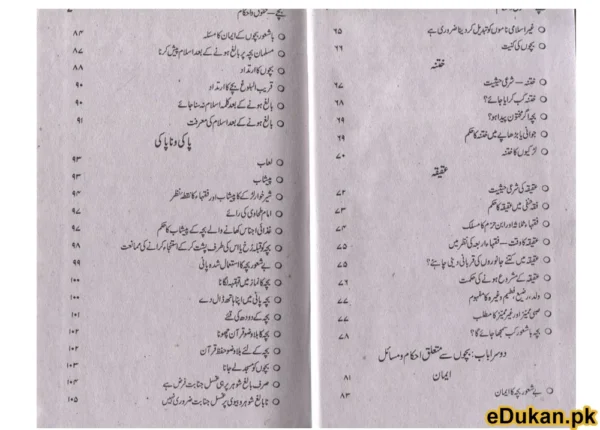 غیر اسلامی ناموں کو تبدیل کر دینا ضروری ہے ۶۵
بچوں کی کنیت ۶۶
ختنہ
ختنہ – شرعی حیثیت ۶۷
ختنہ کب کرایا جائے؟ ۶۸
بچہ اگر مختون پیدا ہو؟ ۶۹
جوانی یا بڑھاپے میں ختنہ کا حکم ۶۹
لڑکیوں کا ختنہ ۷۰
عقیقہ
عقیقہ کی شرعی حیثیت ۷۲
فقہ حنفی میں عقیقہ کا حکم ۷۳
فقہاء ثلاثہ اور ابن حزم کا مسلک ۷۴
عقیقہ کا وقت – فقہاء اربعہ کی نظر میں ۷۵
عقیقہ میں کتنے جانوروں کی قربانی دینی چاہئے؟ ۷۵
عقیقہ کے مشروع ہونے کی حکمت ۷۶
ولد، رضیع، فطیم وغیرہ کا مفہوم ۷۷
صبی ممیز اور غیر ممیز کا مطلب ۷۷
بچہ باشعور کب سمجھا جائے گا؟ ۷۸
دوسرا باب: بچوں سے متعلق احکام و مسائل
ایمان ۸۱
بے شعور بچہ کا ایمان ۸۳
بچے – حقوق و احکام
باشعور بچوں کے ایمان کا مسئلہ ۸۴
مسلمان بچہ پر بالغ ہونے کے بعد اسلام پیش کرنا ۸۷
بچوں کا ارتداد ۸۸
قریب البلوغ بچے کا ارتداد ۹۰
بالغ ہونے کے بعد کلمہ اسلام نہ سنا جائے ۹۰
بالغ ہونے کے بعد اسلام کی معرفت ۹۱
پاکی و ناپاکی
لعاب ۹۳
پیشاب ۹۳
شیر خوار لڑکے کا پیشاب اور فقہاء کا نقطہ نظر ۹۴
امام طحاوی کی رائے ۹۶
غذائی اجناس کھانے والے بچہ کے پیشاب کا حکم ۹۷
بچہ کو قبلہ رخ یا اس کی طرف پشت کر کے استنجاء کرانے کی ممانعت ۹۸
بے شعور بچہ کا استعمال شدہ پانی ۹۹
بچہ کا نماز میں قہقہہ لگانا ۱۰۰
بچہ پانی میں اپنا ہاتھ ڈال دے ۱۰۰
بچہ کے دودھ کی قئے
بچہ کا بلا وضو قرآن چھونا ۱۰۲
بچہ کے لئے بلا وضو حفظ قرآن
بچوں کو مسجد لے جانا ۱۰۳
صرف بالغ شوہر پر ہی غسل جنابت فرض ہے ۱۰۴
نابالغ شوہر و بیوی پر غسل جنابت ضروری نہیں ۱۰۵
eDukan.pk